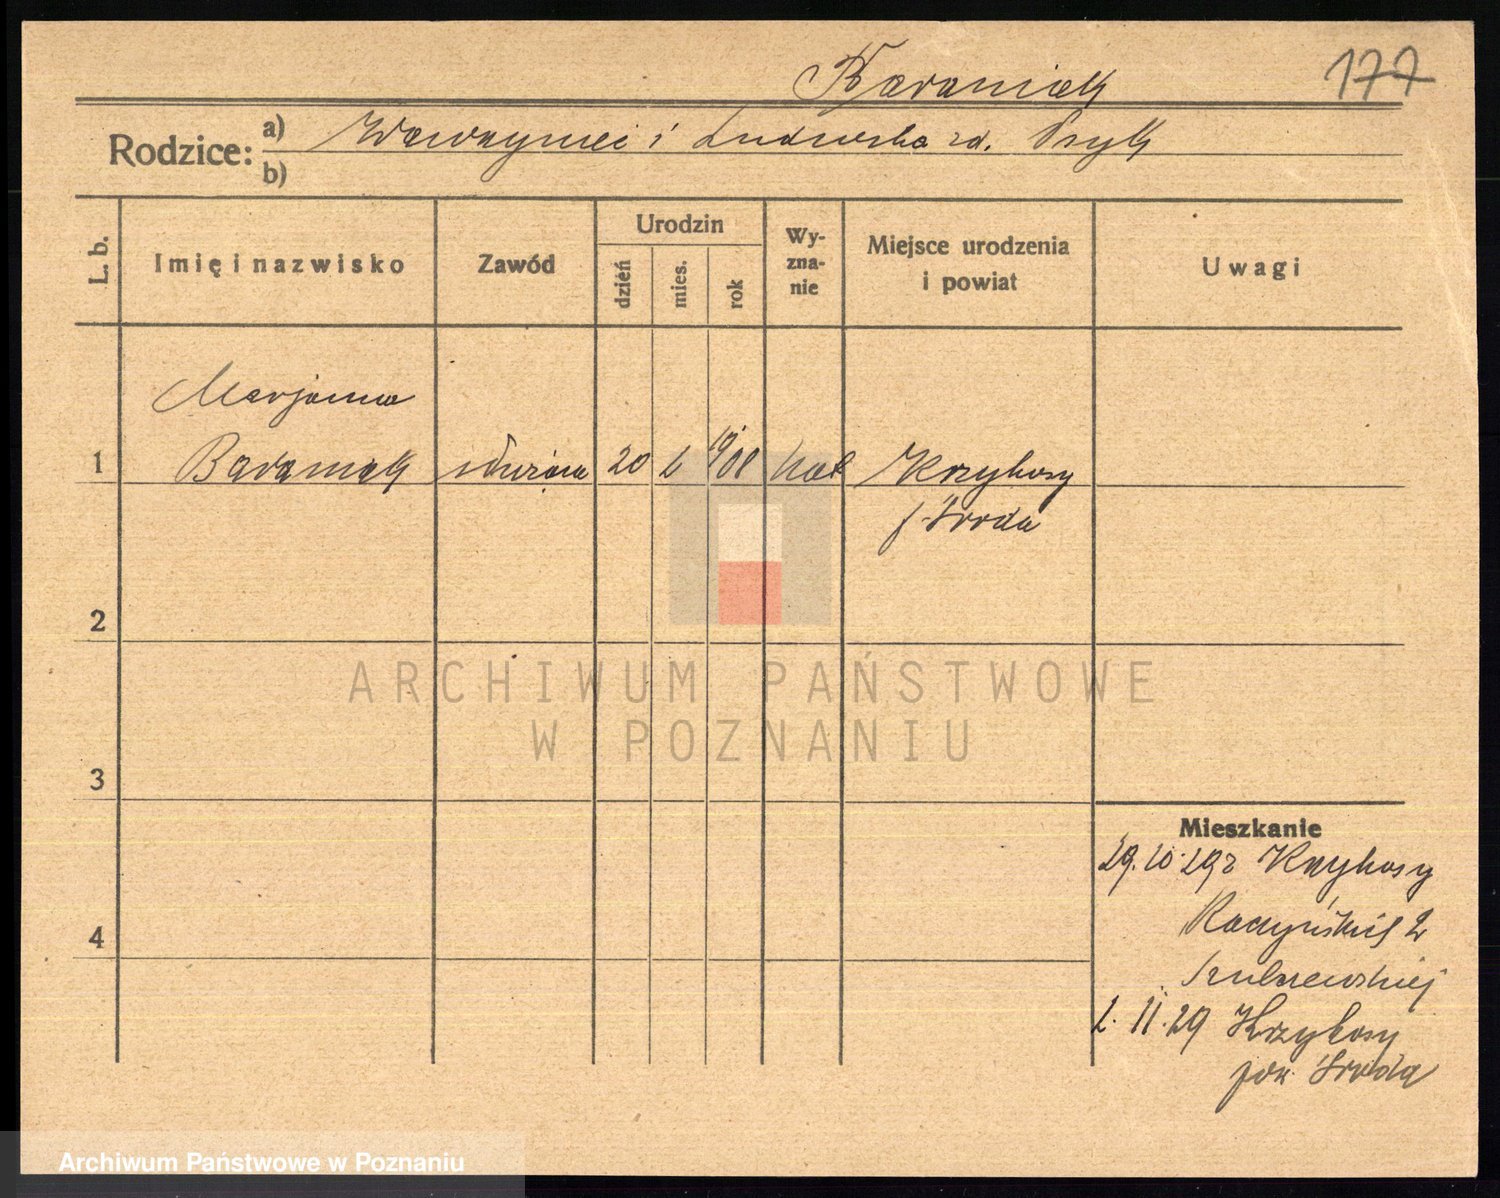 Baraniak
177
Rodzice: a) Wawrzyniec i Ludwika rd.
b)
L. b.
Imię i nazwisko
Zawód
Urodzin
dzień
mies.
rok
Wy-
zna-
nie
Miejsce urodzenia
i powiat
Uwagi
Marjanna
1 Baraniak służąca 20 1901 kat Krzykosy
p Środa
2
3
4
Mieszkanie
29.10.29 z Krzykosy
Raczyńskich 2
11.29 Krzykosy
pow Środa
ARCHIWUM PAŃSTWOWE
W POZNANIU
Archiwum Państwowe w Poznaniu